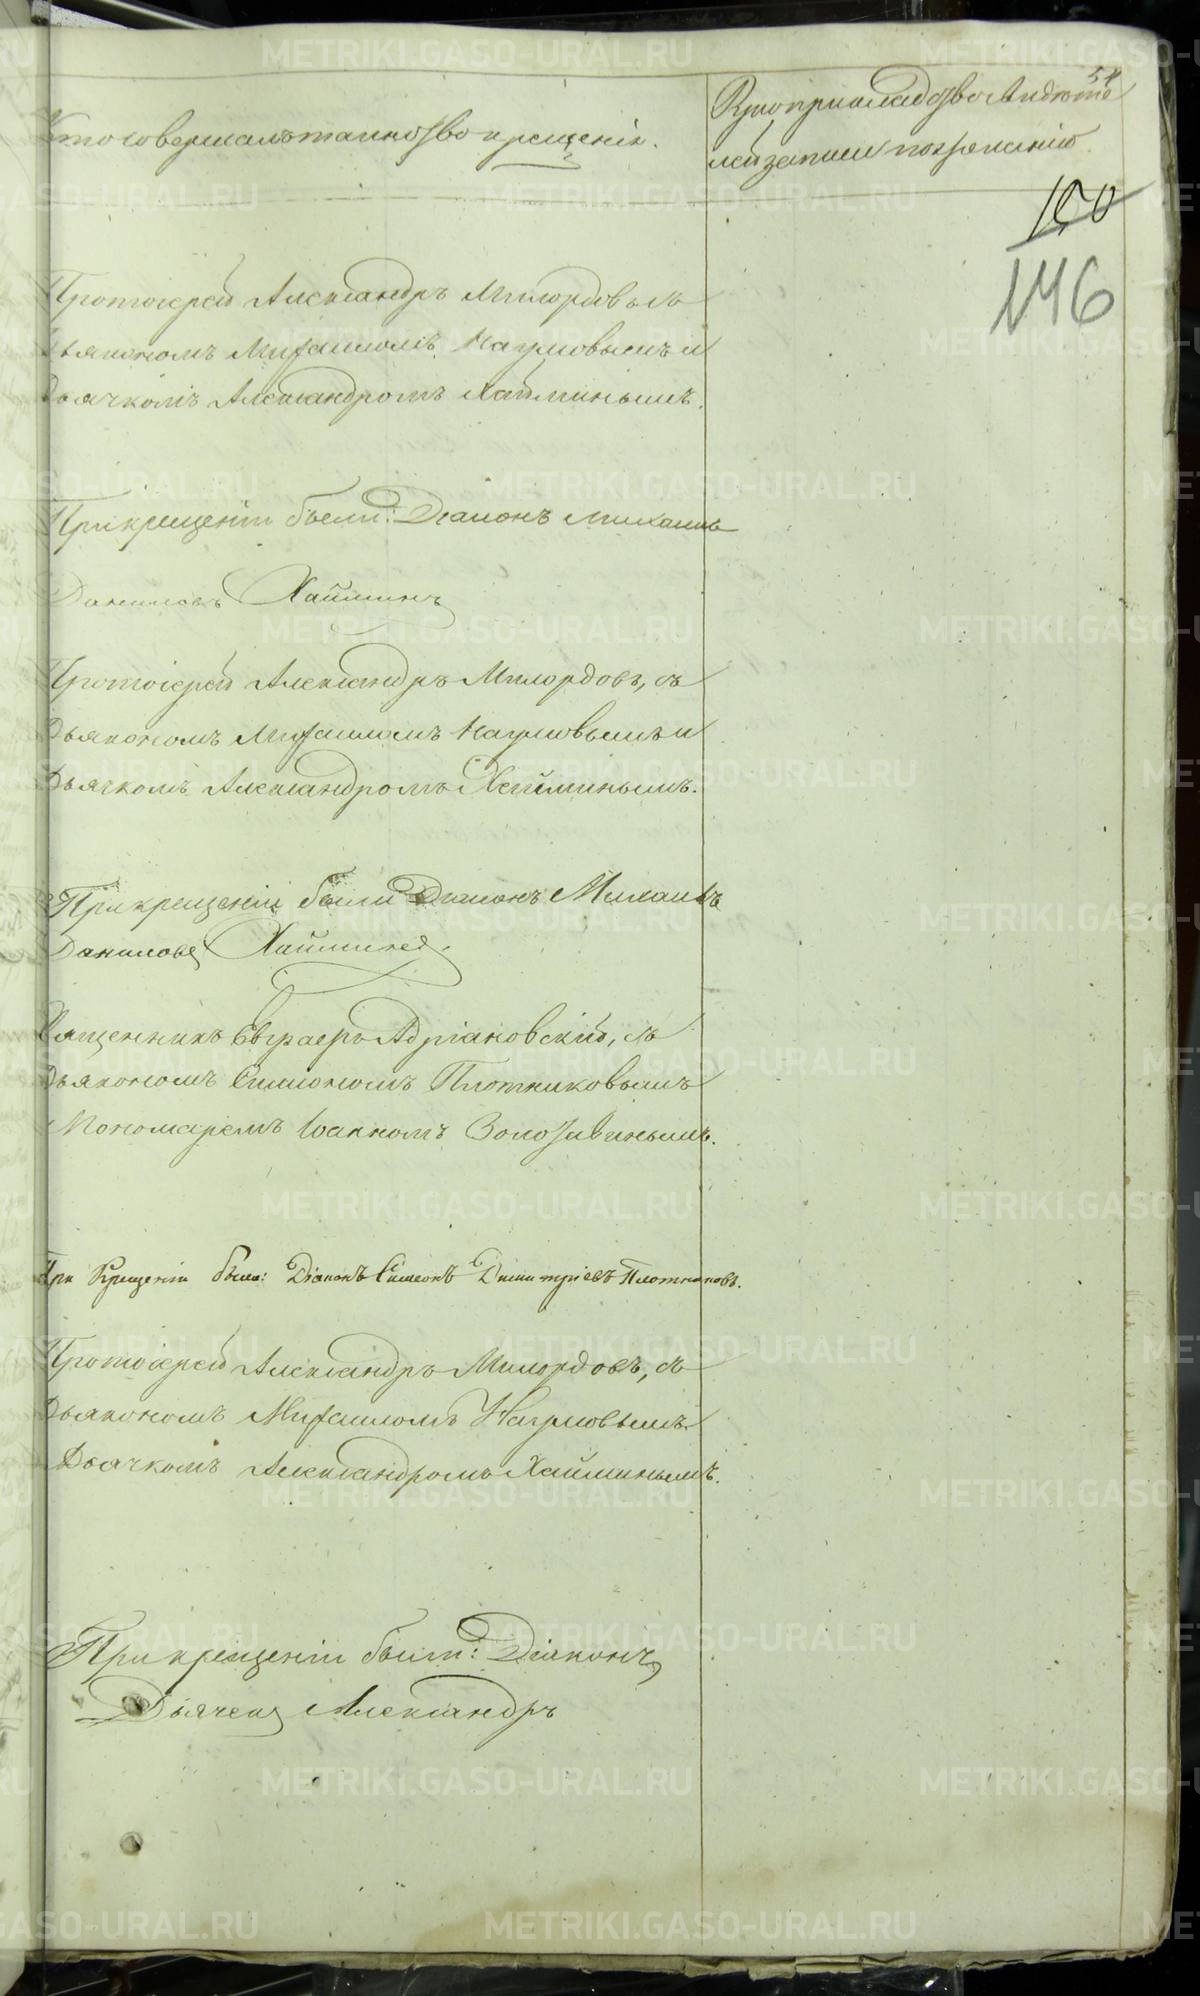 54
Кто совершалъ таинство крещенія.
Рукоприкладство свидѣте
лей записи по желанію
150
146
Протоіерей Александръ Милордовъ съ
Дьякономъ Михаиломъ Наумовымъ и
Дьячкомъ Александромъ Хайминымъ.
При крещеніи были: Діаконъ Михаилъ
Даниловъ Хайминъ
Протоіерей Александръ Милордовъ, съ
Дьякономъ Михаиломъ Наумовымъ и
Дьячкомъ Александромъ Хайминымъ.
При крещеніи были Діаконъ Михаилъ
Даниловъ Хайминъ
Священникъ Евграфъ Адріановскій, съ
Дьякономъ Симеономъ Плотниковымъ
Пономаремъ Іоанномъ Золотавинымъ.
При Крещеніи были: Діаконъ Симеонъ Димитріевъ Плотниковъ.
Протоіерей Александръ Милордовъ, съ
Дьякономъ Михаиломъ Наумовымъ
Дьячкомъ Александромъ Хайминымъ.
При крещеніи были: Діаконъ
Дьячекъ Александръ
METRIKI.GASO-URAL.RU